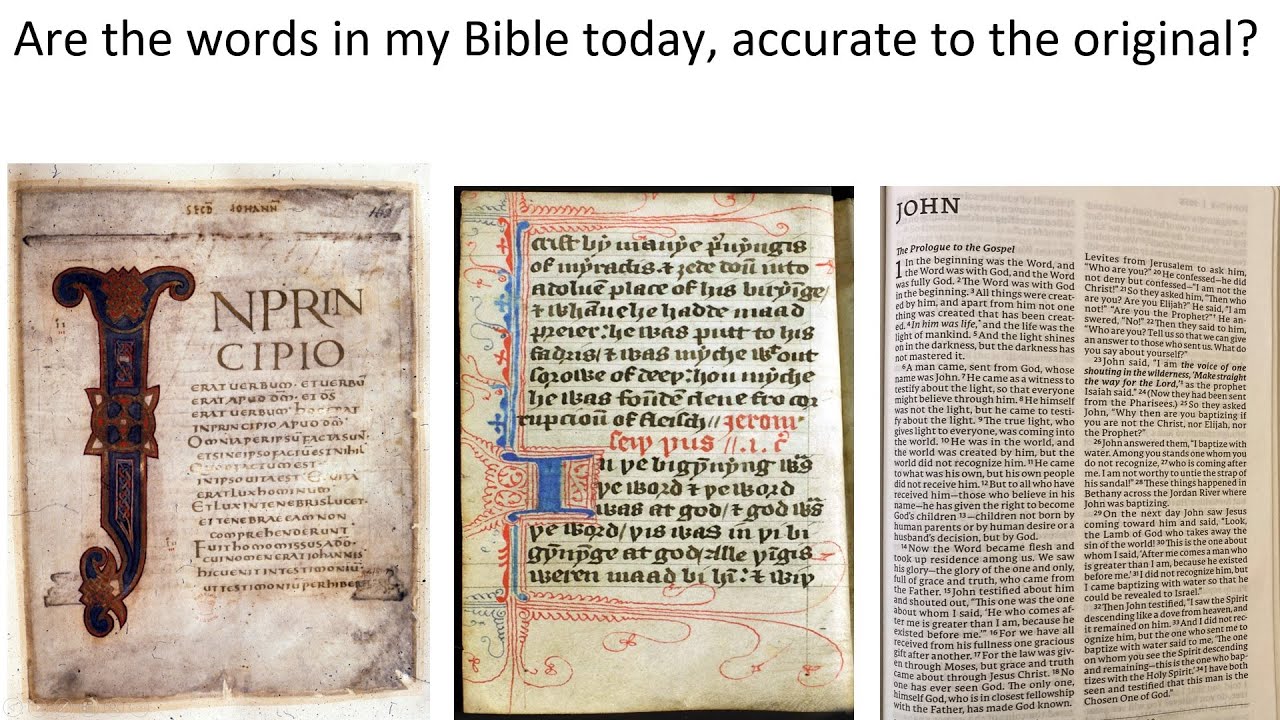 Are the words in my Bible today, accurate to the original?
SECD IOHANN
INPRIN
CIPIO
ERAT UERBUM· ET UERBŪ
ERAT APUD DM̄· ET DS
ERAT UERBUM· HOC ERAT
IN PRINCIPIO APUD DM̄
OMNIA PER IPSŪ FACTA SUN·
ET SINE IPSO FACTUM EST NIHIL
QUOD FACTUM EST·
IN IPSO UITA EST· ET UITA
ERAT LUX HOMINUM
ET LUX IN TENEBRIS LUCET·
ET TENEBRAE EAM NON
COMPREHENDERUNT·
FUIT HOMO MISSUS A DO·
CUI NOMEN ERAT IOHANNIS
HIC UENIT IN TESTIMONIŪ·
UT TESTIMONIŪ PERHIBERET
crist bi manye
of myraclis & ȝede doū into
a doluē place of his biryīge/
& whāne he hadde maad
preier: he was putt to his
fadris/ & was myche wtout
sorowe of deeþ: hou myche
he was foūdē clene fro cor
rupcioū of fleisch// Jerom
In þe bigȳnȳng was
þe word & þe word
was at god/ & god was
þe word/ þis was in þi bi
gȳnȳge at god/ alle þīgis
weren maad bi hī: & wiþ
JOHN
The Prologue to the Gospel
1 In the beginning was the Word, and
the Word was with God, and the Word
was fully God. 2 The Word was with God
in the beginning. 3 All things were creat-
ed by him, and apart from him not one
thing was created that has been creat-
ed. 4 In him was life, and the life was the
light of mankind. 5 And the light shines
on in the darkness, but the darkness has
not mastered it.
6 A man came, sent from God, whose
name was John. 7 He came as a witness to
testify about the light, so that everyone
might believe through him. 8 He himself
was not the light, but he came to testi-
fy about the light. 9 The true light, who
gives light to everyone, was coming into
the world. 10 He was in the world, and
the world was created by him, but the
world did not recognize him. 11 He came
to what was his own, but his own people
did not receive him. 12 But to all who have
received him—those who believe in his
name—he has given the right to become
God's children 13—children not born by
human parents or by human desire or a
husband's decision, but by God.
14 Now the Word became flesh and
took up residence among us. We saw
his glory—the glory of the one and only,
full of grace and truth, who came from
the Father. 15 John testified about him
and shouted out, "This one was the one
about whom I said, 'He who comes af-
ter me is greater than I am, because he
existed before me.'" 16 For we have all
received from his fullness one gracious
gift after another. 17 For the law was giv-
en through Moses, but grace and truth
came about through Jesus Christ. 18 No
one has ever seen God. The only one,
himself God, who is in closest fellowship
with the Father, has made God known.
Levites from Jerusalem to ask him,
"Who are you?" 20 He confessed—he did
not deny but confessed—"I am not the
Christ!" 21 So they asked him, "Then who
are you? Are you Elijah?" He said, "I am
not!" "Are you the Prophet?" He an-
swered, "No!" 22 Then they said to him,
"Who are you? Tell us so that we can give
an answer to those who sent us. What do
you say about yourself?"
23 John said, "I am the voice of one
shouting in the wilderness, 'Make straight
the way for the Lord,' as the prophet
Isaiah said." 24 (Now they had been sent
from the Pharisees.) 25 So they asked
John, "Why then are you baptizing if
you are not the Christ, nor Elijah, nor
the Prophet?"
26 John answered them, "I baptize with
water. Among you stands one whom you
do not recognize, 27 who is coming after
me. I am not worthy to untie the strap of
his sandal!" 28 These things happened in
Bethany across the Jordan River where
John was baptizing.
29 On the next day John saw Jesus
coming toward him and said, "Look,
the Lamb of God who takes away the
sin of the world! 30 This is the one about
whom I said, 'After me comes a man who
is greater than I am, because he existed
before me.' 31 I did not recognize him, but
I came baptizing with water so that he
could be revealed to Israel."
32 Then John testified, "I saw the Spirit
descending like a dove from heaven, and
it remained on him. 33 And I did not rec-
ognize him, but the one who sent me to
baptize with water said to me, 'The one
on whom you see the Spirit descending
and remaining—this is the one who bap-
tizes with the Holy Spirit.' 34 I have both
seen and testified that this man is the
Chosen One of God."